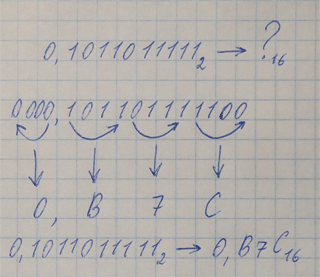 0,10110111111₂ → ?₁₆
0000,101101111100
0, B 7 C
0,10110111111₂ → 0,B7C₁₆